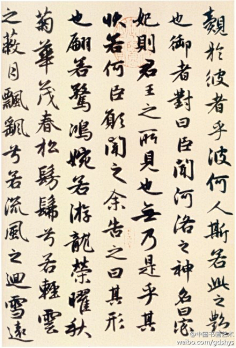 覿於彼者乎彼何人斯若此之艷
也御者對曰臣聞河洛之神名曰宓
妃則君王之所見也無乃是乎其
狀若何臣願聞之余告之曰其形
也翩若驚鴻婉若游龍榮曜秋
菊華茂春松髣髴兮若輕雲
之蔽月飄飄兮若流風之迴雪遠
weibo.com/gdshys